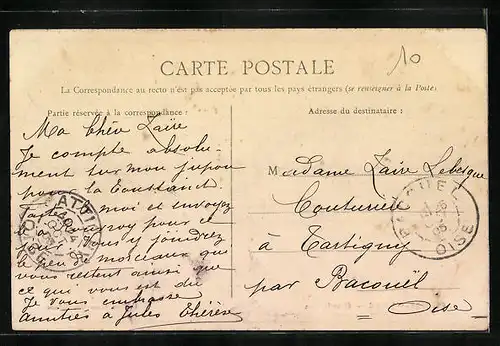 10
CARTE POSTALE
La Correspondance au recto n'est pas acceptée par tous les pays étrangers (se renseigner à la Poste)
Partie réservée à la correspondance :
Adresse du destinataire :
Ma Chère Zaïre
Je compte absolu-
ment sur mon jupon
pour la Toussaint
moi et envoyez
pour ce
vous y joindrez
le peu morceaux que
vous restent ainsi que
ce qui vous est dû
Je vous embrasse
amitiés à Jules Thérèse
Madame Zaïre Lebesque
Couturière
à Tartigny
par Bacouël
Oise
OISE